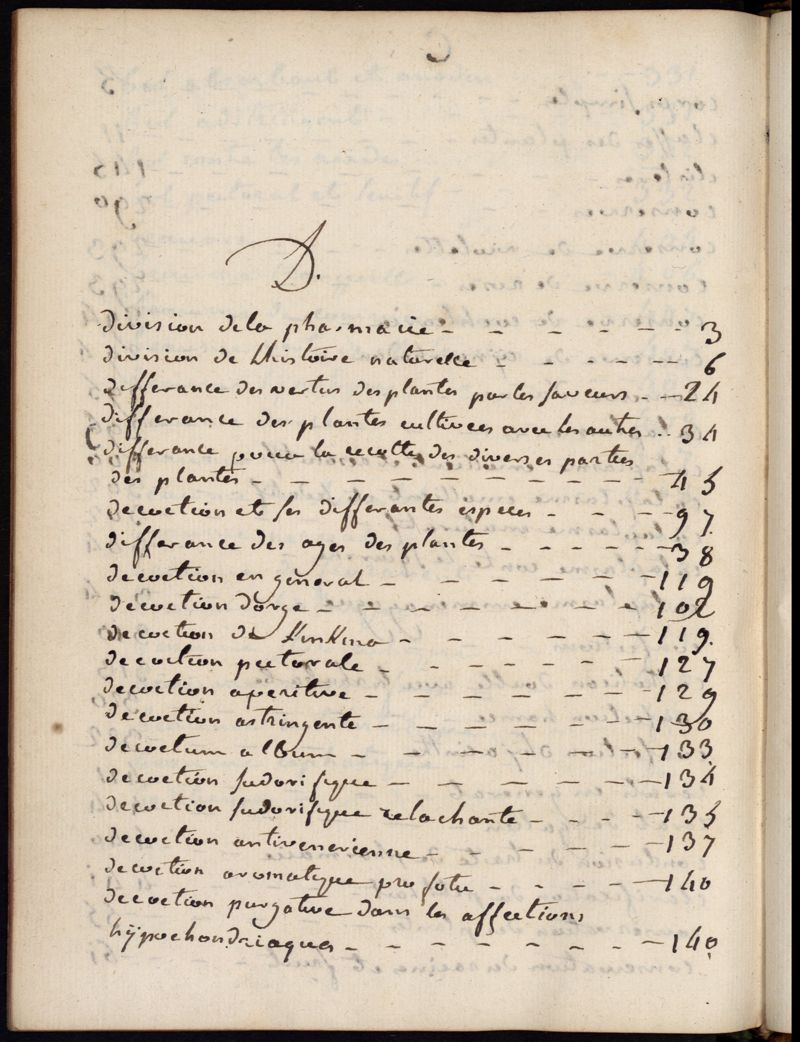 D.
division dela pharmacie - - - - - - 3
division de Lhistoire naturelle - - - - - 6
differance des vertus des plantes par les saveurs - - 24
differance des plantes cultivées avec les autres .. 34
differance pour la recolte des diverses parties
des plantes - - - - - - - - - - 45
decoction et ses differantes especes - - - - 97
differance des ages des plantes - - - - - 38
decoction en general - - - - - - 119
decoction dorge - - - - - - - 102
decoction de KinKina - - - - - - 119.
decoction pectorale - - - - - - 127
decoction aperitive - - - - - - 129
decoction astringente - - - - - - 130
decoctum album - - - - - - - 133
decoction sudorifique - - - - - - 134
decoction sudorifique relachante - - - - 135
decoction antivenerienne - - - - - - 137
decoction aromatique pro fotu - - - - - 140
decoction purgative dans les affections
hÿpochondriaques - - - - - - - 140